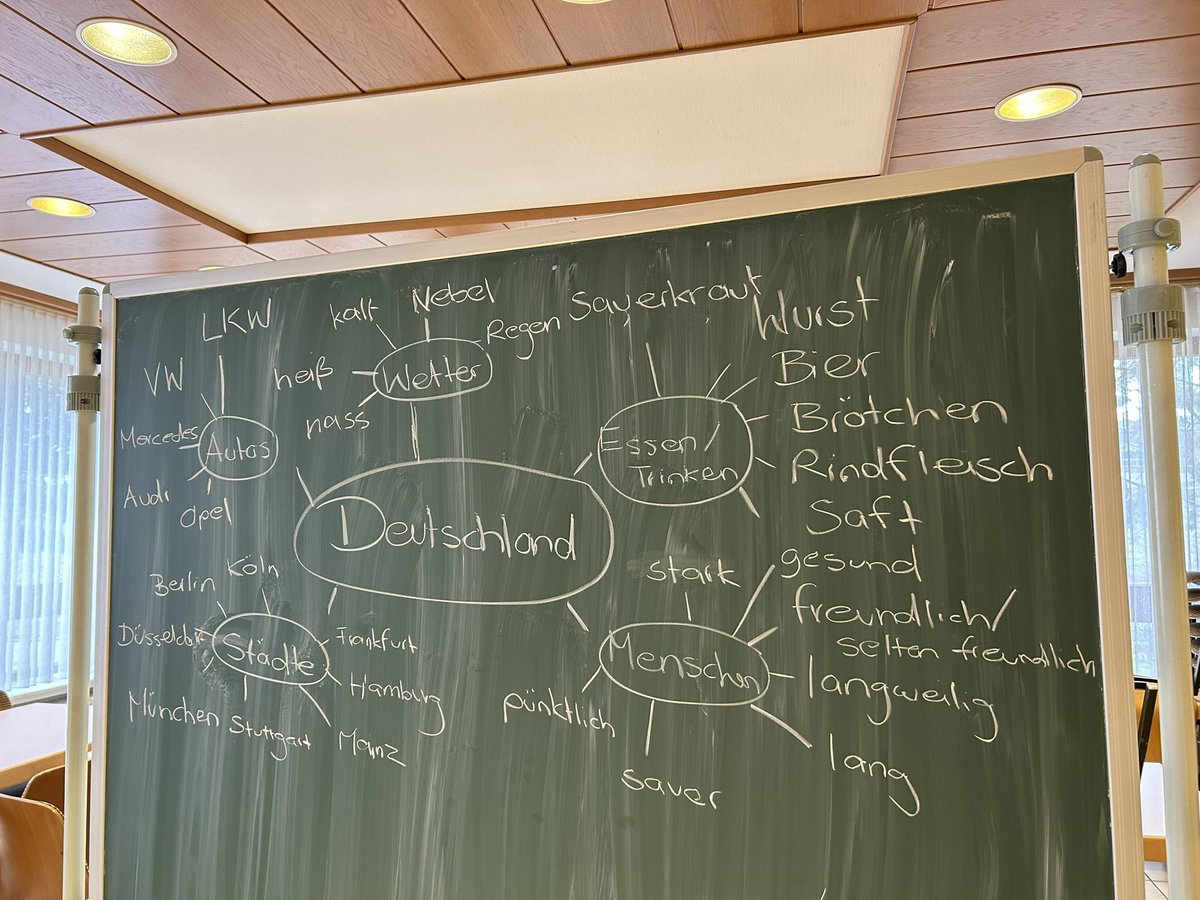 Deutschland
Autos
LKW
VW
Mercedes
Audi
Opel
Wetter
kalt
Nebel
Regen
heiß
nass
Essen/
Trinken
Sauerkraut
Wurst
Bier
Brötchen
Rindfleisch
Saft
Städte
Berlin
Köln
Düsseldorf
Frankfurt
Hamburg
München
Stuttgart
Mainz
Menschen
stark
gesund
freundlich/
selten freundlich
langweilig
lang
sauer
pünktlich